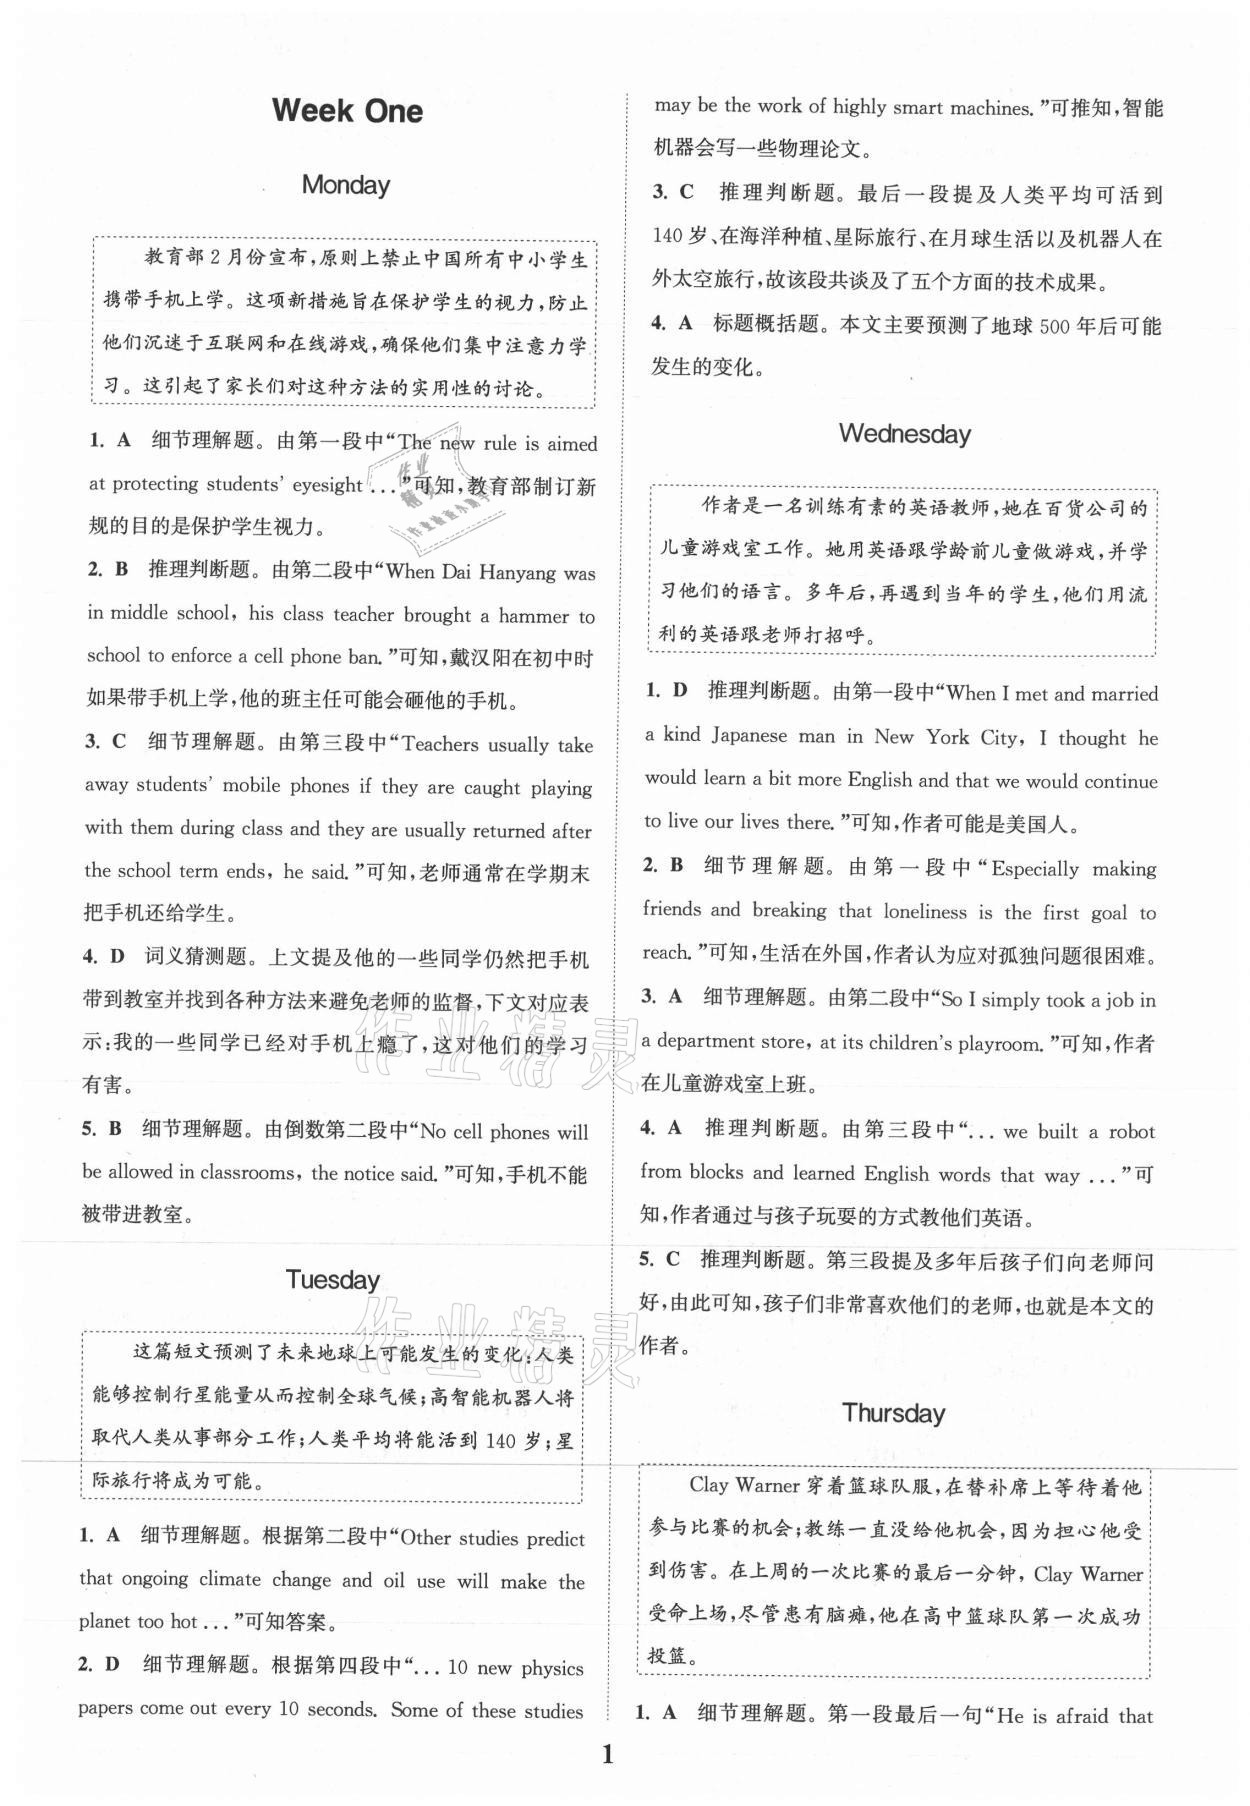 Week One
Monday
教育部2月份宣布,原则上禁止中国所有中小学生
携带手机上学。这项新措施旨在保护学生的视力,防止
他们沉迷于互联网和在线游戏,确保他们集中注意力学
习。这引起了家长们对这种方法的实用性的讨论。
1. A 细节理解题。由第一段中“The new rule is aimed
at protecting students' eyesight ...”可知,教育部制订新
规的目的是保护学生视力。
2. B 推理判断题。由第二段中“When Dai Hanyang was
in middle school, his class teacher brought a hammer to
school to enforce a cell phone ban.”可知,戴汉阳在初中时
如果带手机上学,他的班主任可能会砸他的手机。
3. C 细节理解题。由第三段中“Teachers usually take
away students' mobile phones if they are caught playing
with them during class and they are usually returned after
the school term ends, he said.”可知,老师通常在学期末
把手机还给学生。
4. D 词义猜测题。上文提及他的一些同学仍然把手机
带到教室并找到各种方法来避免老师的监督,下文对应表
示:我的一些同学已经对手机上瘾了,这对他们的学习
有害。
5. B 细节理解题。由倒数第二段中“No cell phones will
be allowed in classrooms, the notice said.”可知,手机不能
被带进教室。
Tuesday
这篇短文预测了未来地球上可能发生的变化:人类
能够控制行星能量从而控制全球气候;高智能机器人将
取代人类从事部分工作;人类平均将能活到140岁;星
际旅行将成为可能。
1. A 细节理解题。根据第二段中“Other studies predict
that ongoing climate change and oil use will make the
planet too hot ...”可知答案。
2. D 细节理解题。根据第四段中“... 10 new physics
papers come out every 10 seconds. Some of these studies
may be the work of highly smart machines.”可推知,智能
机器会写一些物理论文。
3. C 推理判断题。最后一段提及人类平均可活到
140岁、在海洋种植、星际旅行、在月球生活以及机器人在
外太空旅行,故该段共谈及了五个方面的技术成果。
4. A 标题概括题。本文主要预测了地球500年后可能
发生的变化。
Wednesday
作者是一名训练有素的英语教师,她在百货公司的
儿童游戏室工作。她用英语跟学龄前儿童做游戏,并学
习他们的语言。多年后,再遇到当年的学生,他们用流
利的英语跟老师打招呼。
1. D 推理判断题。由第一段中“When I met and married
a kind Japanese man in New York City, I thought he
would learn a bit more English and that we would continue
to live our lives there.”可知,作者可能是美国人。
2. B 细节理解题。由第一段中“Especially making
friends and breaking that loneliness is the first goal to
reach.”可知,生活在外国,作者认为应对孤独问题很困难。
3. A 细节理解题。由第二段中“So I simply took a job in
a department store, at its children's playroom.”可知,作者
在儿童游戏室上班。
4. A 推理判断题。由第三段中“... we built a robot
from blocks and learned English words that way ...”可
知,作者通过与孩子玩耍的方式教他们英语。
5. C 推理判断题。第三段提及多年后孩子们向老师问
好,由此可知,孩子们非常喜欢他们的老师,也就是本文的
作者。
Thursday
Clay Warner 穿着篮球队服,在替补席上等待着他
参与比赛的机会;教练一直没给他机会,因为担心他受
到伤害。在上周的一次比赛的最后一分钟, Clay Warner
受命上场,尽管患有脑瘫,他在高中篮球队第一次成功
投篮。
1. A 细节理解题。第一段最后一句“He is afraid that
1
作业精灵
作业精灵
作业精灵